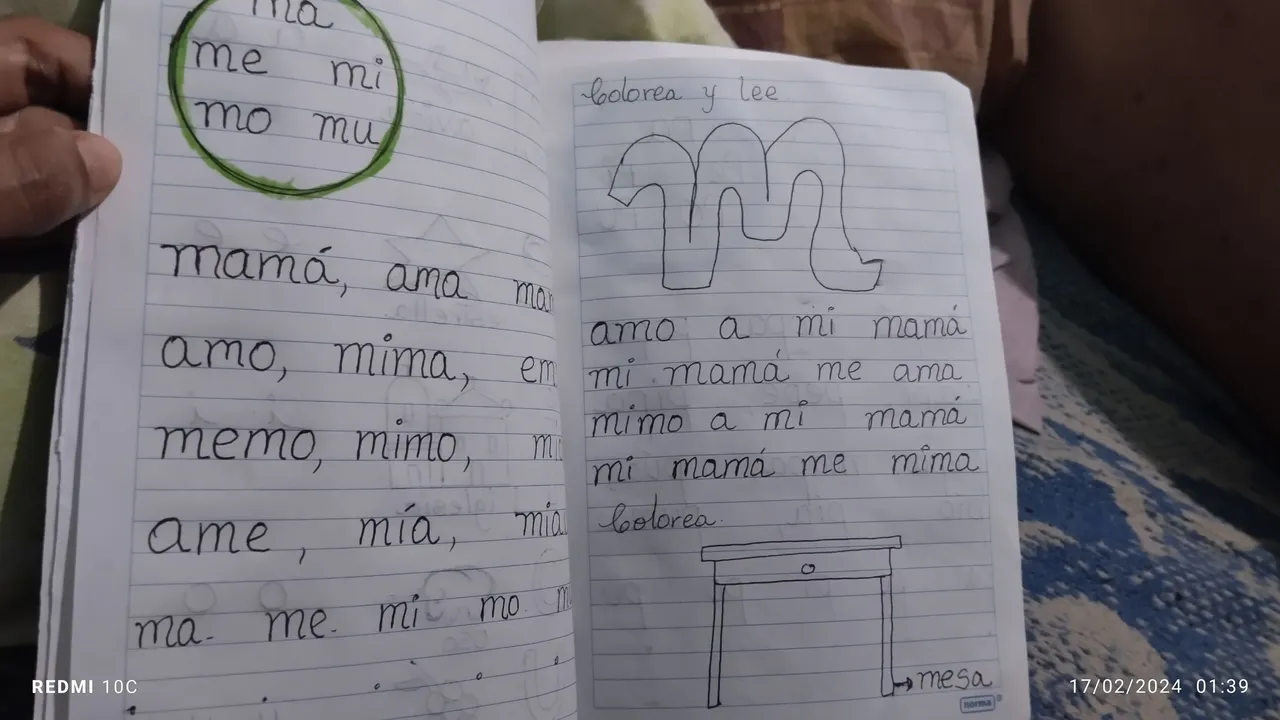 ma
me mi
mo mu
mamá, ama
amo, mima,
memo, mimo,
ame, mía,
ma- me- mi mo
Colorea y lee
m
amo a mi mamá
mi mamá me ama
mimo a mi mamá
mi mamá me mima
Colorea.
mesa
norma
REDMI 10C
17/02/2024 01:39